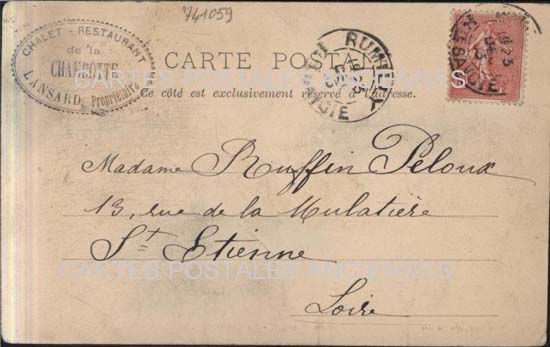 741059
CHALET - RESTAURANT
de la
CHAMBOTTE
LANSARD, Propriétaire
CARTE POSTALE
Ce côté est exclusivement réservé à l'adresse.
RUMILLY
SAVOIE
Madame Ruffin Péloux
13, rue de la Mulatière
St Etienne
Loire
CARTES POSTALES ANCIENNES